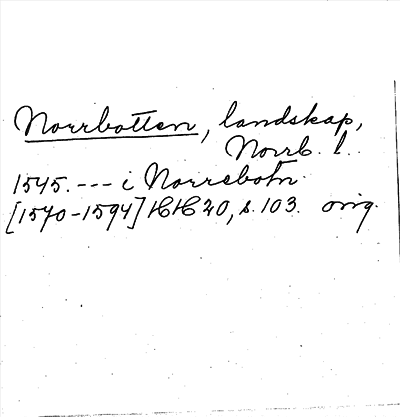 Norrbotten, landskap,
Norrb. l.
1545. --- i Norrebotn.
[1570-1594] HH 20, s. 103. orig.